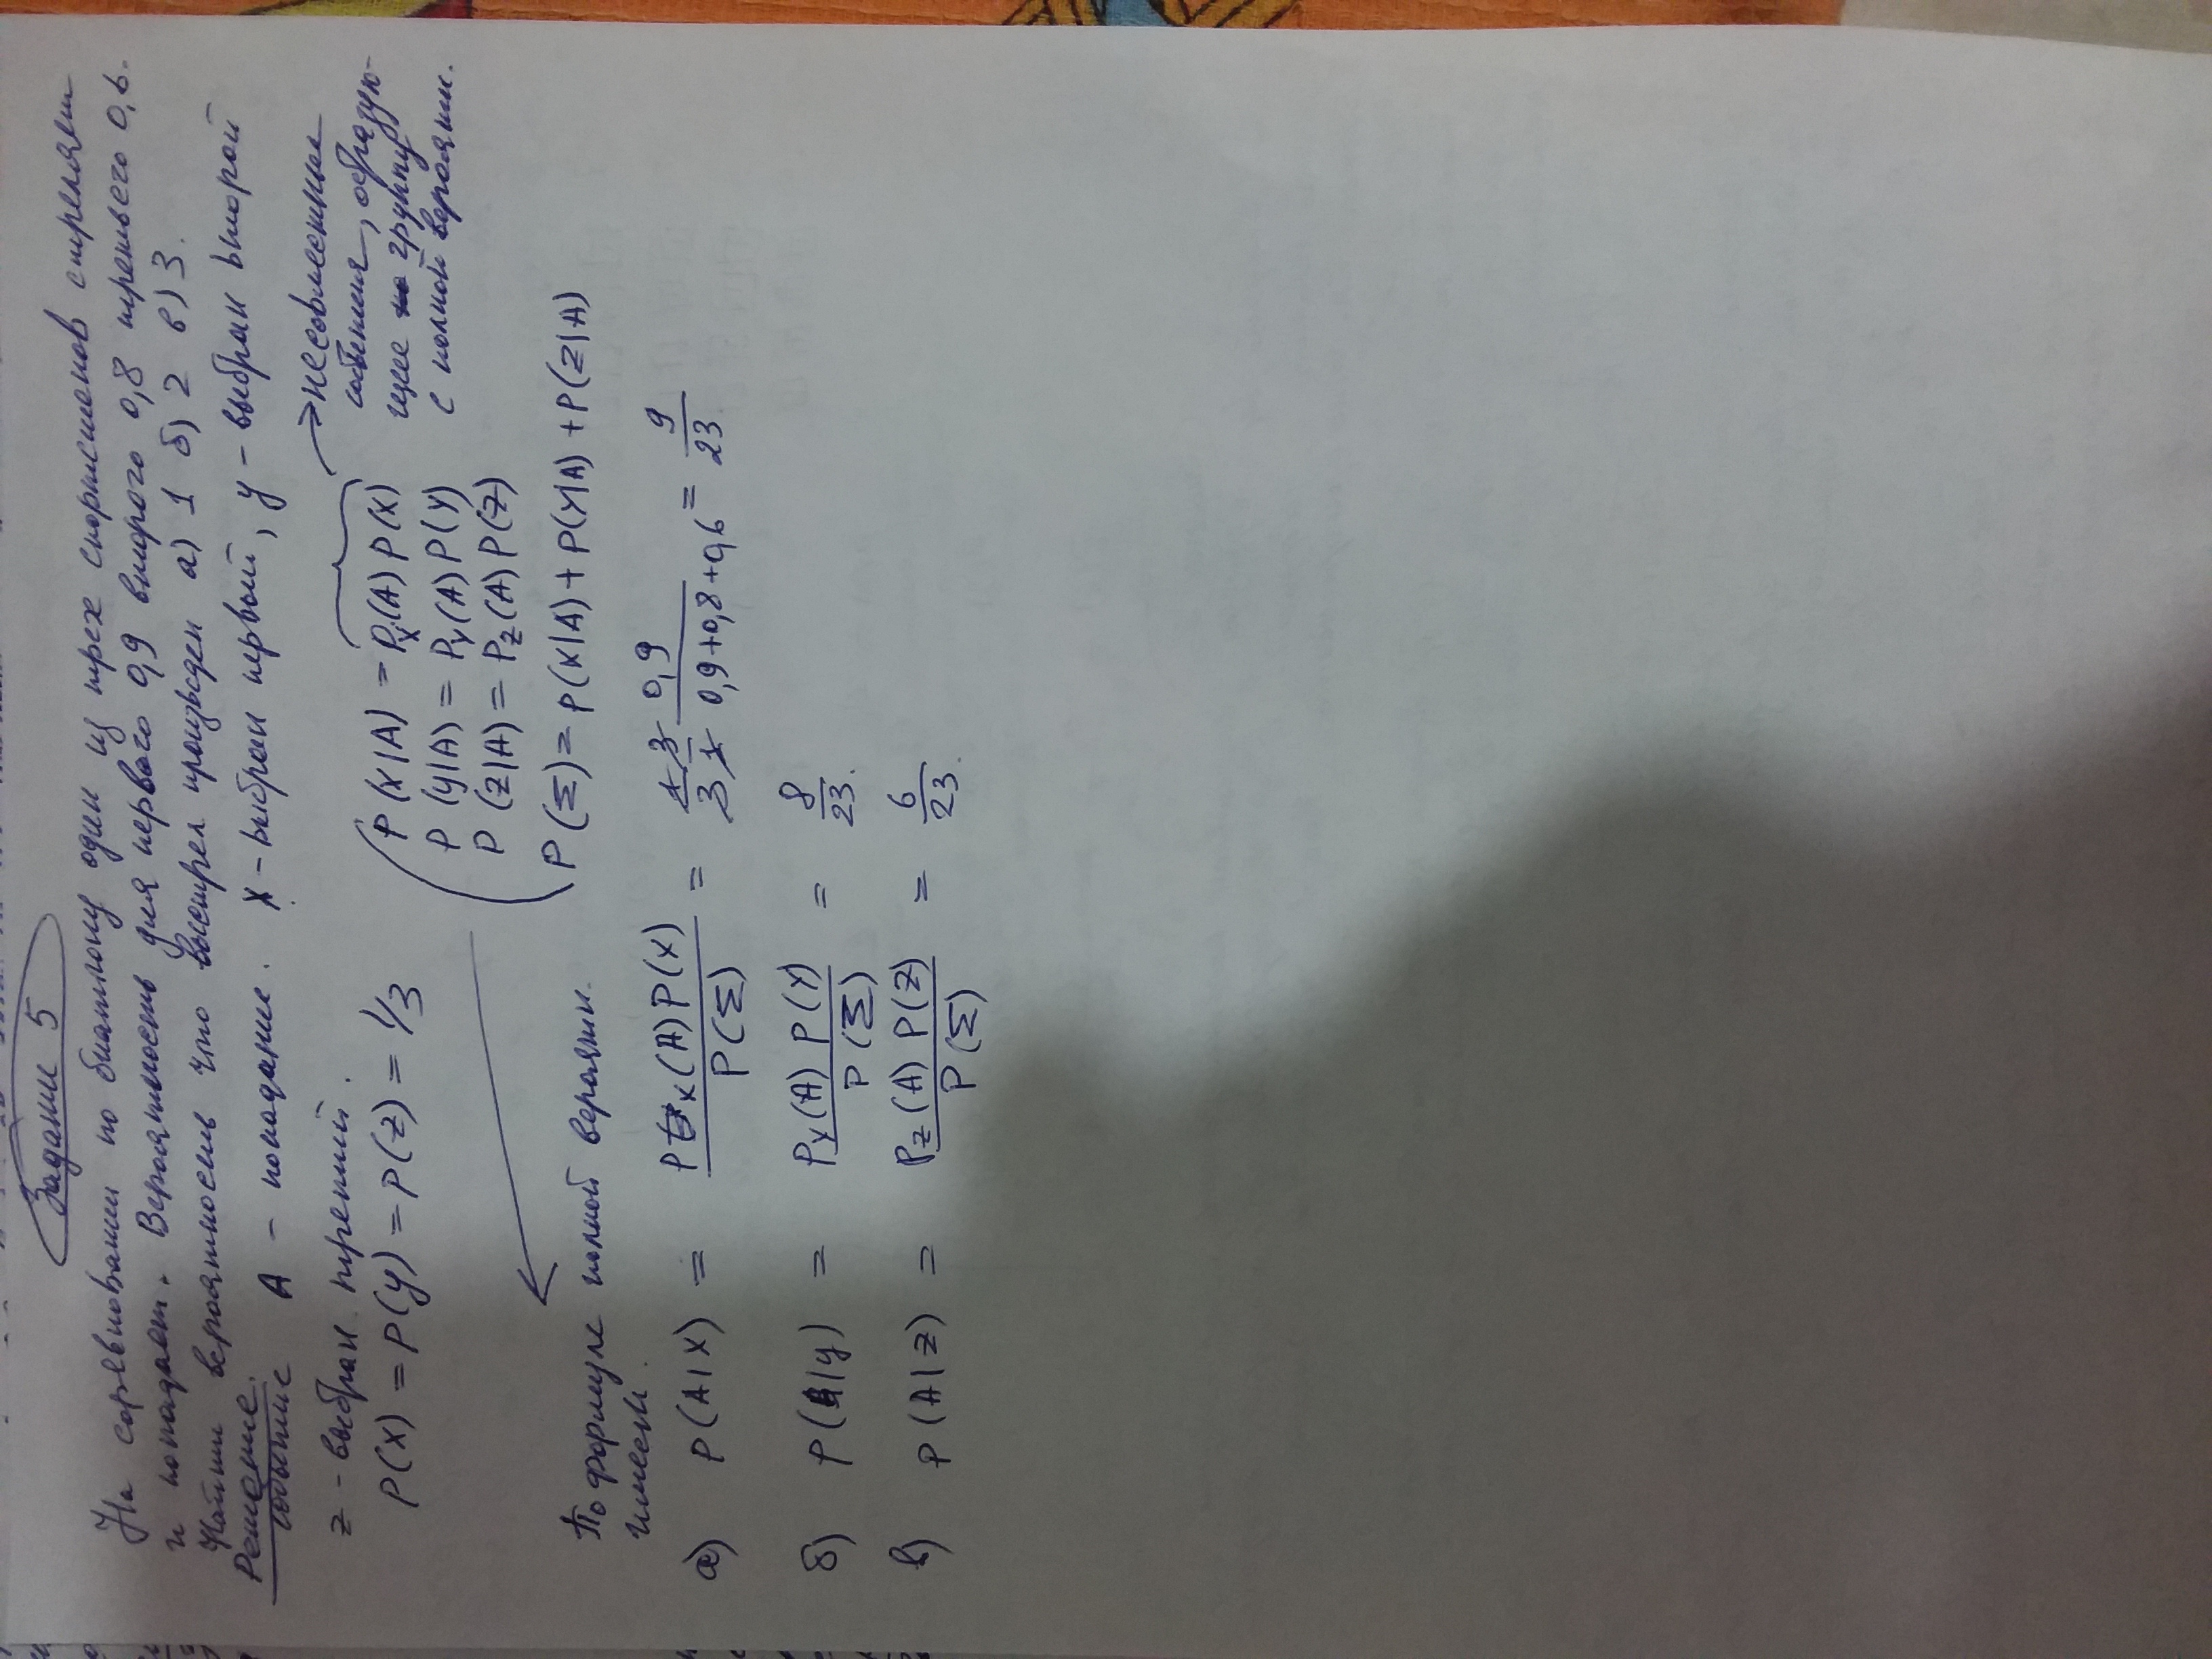 Задание 5
На соревновании по биатлону один из трех спортсменов стреляет
и попадает. Вероятность для первого 0,9 второго 0,8 третьего 0,6.
Найти вероятность что выстрел произведен а) 1 б) 2 в) 3.
Решение.
событие A - попадание. X - выбран первый, y - выбран второй
z - выбран третий.
P(X) = P(y) = P(z) = 1/3
P(X|A) = Pₓ(A) P(X)
P(y|A) = Pᵧ(A) P(y)
P(z|A) = P_z(A) P(z)
P(Σ) = P(X|A) + P(Y|A) + P(z|A)
→ несовместные
события, образую-
щее группу
с полной вероятн.
По формуле полной вероятн.
имеем.
а) P(A|X) = Pₓ(A) P(X) / P(Σ) = 1/3 3/1 0,9 / 0,9+0,8+0,6 = 9/23
б) P(A|y) = Pᵧ(A) P(Y) / P(Σ) = 8/23.
в) P(A|z) = P_z(A) P(z) / P(Σ) = 6/23.